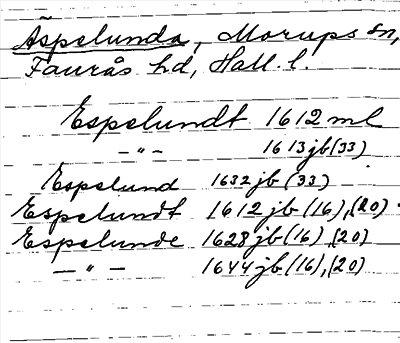 Äspelunda, Morups sn,
Faurås hd, Hall. l.
Espelundt 1612 ml
—"— 1613 jb (33)
Espelund 1632 jb (33)
Espelundt 1612 jb (16), (20)
Espelunde 1628 jb (16), (20)
—"— 1644 jb (16), (20)